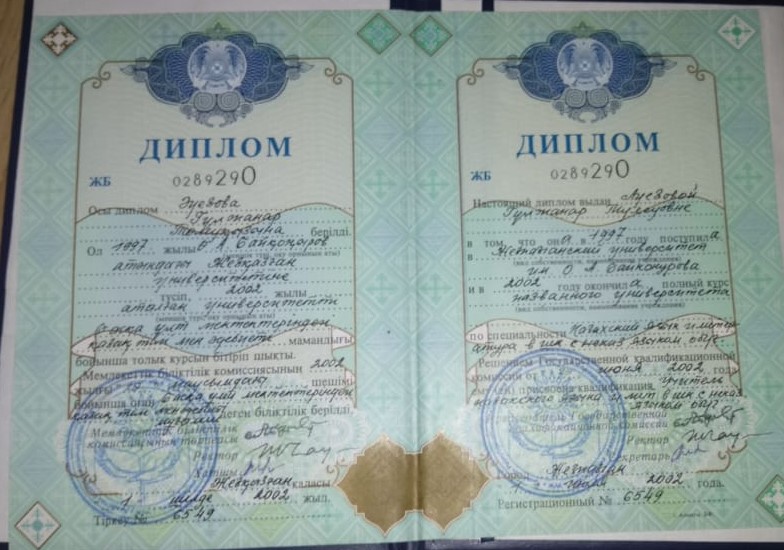 ДИПЛОМ
ЖБ 0289290
Осы диплом Әуезова
Гүлжанар
берілді.
Ол 1997 жылы Ө А Байқоңыров
атындағы Жезқазған
университетіне
түсіп, 2002 жылы
аталған университеттің
басқа ұлт мектептеріндегі
қазақ тілі мен әдебиеті мамандығы
бойынша толық курсын бітіріп шықты.
Мемлекеттік біліктілік комиссиясының 2002
жылғы маусымдағы шешімі
бойынша оған басқа ұлт мектептеріндегі
қазақ тілі
деген біліктілік берілді.
Мемлекеттік біліктілік
комиссиясының төрағасы
Ректор
Хатшы
Жезқазған қаласы
1 шілде 2002 жыл.
Тіркеу № 6549
ДИПЛОМ
ЖБ 0289290
Настоящий диплом выдан Ауезовой
Гулжанар
в том, что она в 1997 году поступила
в Жезказганский университет
им. О А Байконурова
и в 2002 году окончила полный курс
названного университета
по специальности Казахский язык и литер-
атура в шк с неказ языком обуч.
Решением Государственной квалификационной
комиссии от июня 2002 года
присвоена квалификация учитель
казахского языка и лит в шк с неказ
языком обуч
Председатель Государственной
квалификационной комиссии
Ректор
Секретарь
Город Жезказган
1 июля 2002 года.
Регистрационный № 6549